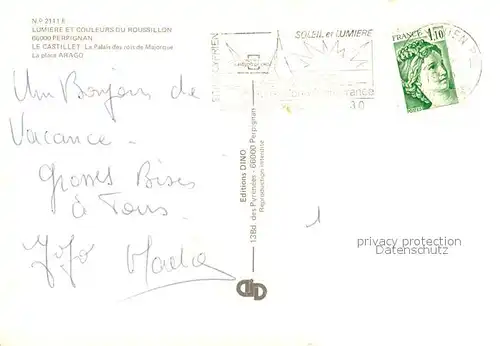 N° 2111 E
LUMIERE ET COULEURS DU ROUSSILLON
66000 PERPIGNAN
LE CASTILLET La Palais des rois de Majorque
La place ARAGO
Un Bonjour de
Vacance -
Grosses Bises
à Tous
Jojo Mado
ST CYPRIEN
SOLEIL et LUMIERE
FRANCE 1,10
POSTES
Editions DINO
13Bd. des Pyrénées - 66000 Perpignan
Reproduction interdite
privacy protection
Datenschutz